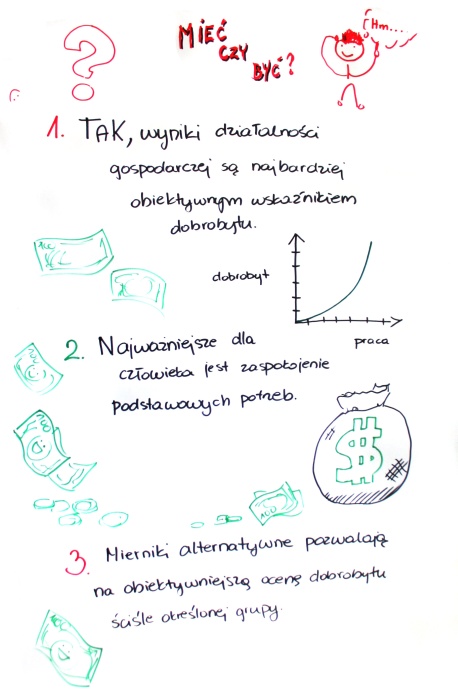 MIEĆ
CZY
BYĆ?
Hm...
1. TAK, wyniki działalności
gospodarczej są najbardziej
obiektywnym wskaźnikiem
dobrobytu.
dobrobyt
praca
2. Najważniejsze dla
człowieka jest zaspokojenie
podstawowych potrzeb.
$
100
3. Mierniki alternatywne pozwalają
na obiektywniejszą ocenę dobrobytu
ściśle określonej grupy.